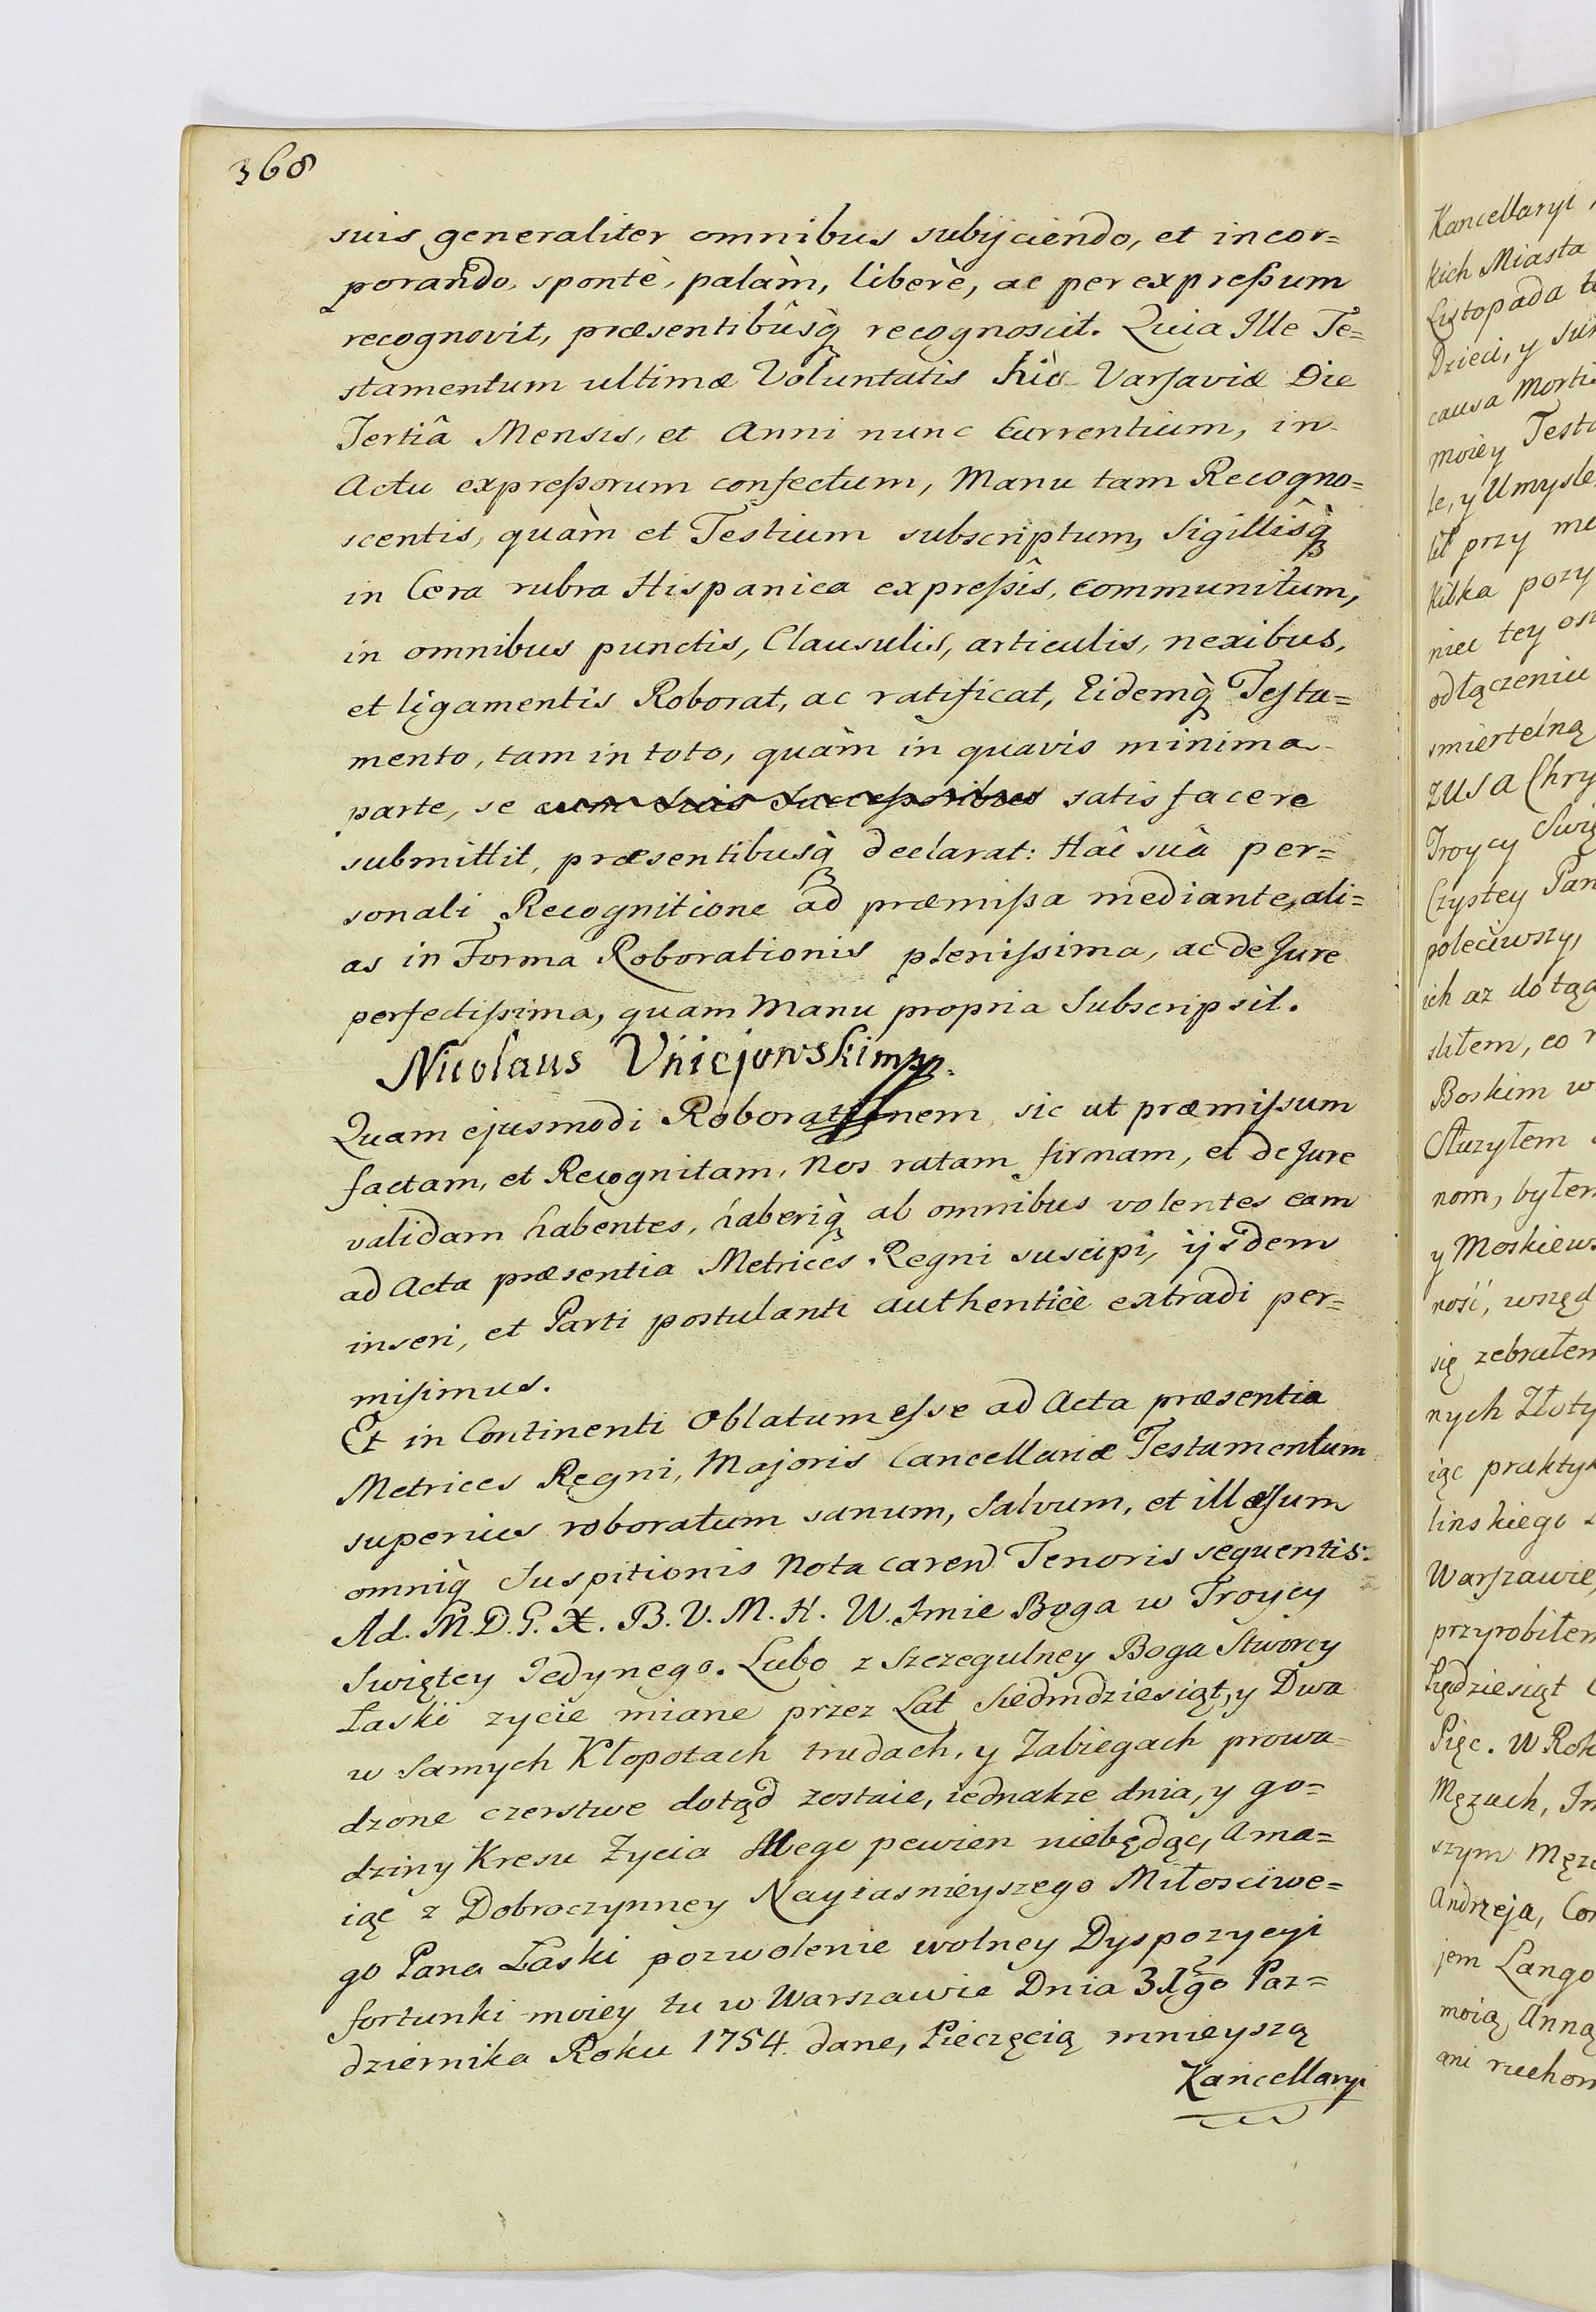 368
suis generaliter omnibus subijciendo, et incor=
porando, spontè, palàm, liberè, ac per expreßum
recognovit, præsentibûsq̀ recognoscit. Quia Ille Te=
stamentum ultimæ Voluntatis hic Varsaviæ Die
Tertiâ Mensis, et Anni nunc Currentium, in
Actu expreßorum confectum, Manu tam Recogno=
scentis, quàm et Testium subscriptum, Sigillîsq̀
in Cera rubra Hispanica expreßîs, communitum,
in omnibus punctis, Clausulis, articulis, nexibus,
et ligamentis Roborat, ac ratificat, Eidemq̀ Testa=
mento, tam in toto, quàm in quavis minima
parte, se cum suis Succeßoribus satisfacere
submittit, præsentibusq̀ declarat: Hâc suâ per=
sonali Recognitione ad præmißa mediante, ali=
as in Forma Roborationis plenissima, ac de Jure
perfectissima, quam Manu propria Subscripsit.
Nicolaus Vniejowski mpp.
Quam ejusmodi Roborationem, sic ut præmissum
factam, et Recognitam, Nos ratam firmam, et de Jure
validam habentes, haberiq̀ ab omnibus volentes eam
ad Acta præsentia Metrices Regni suscipi, ijsdem
inseri, et Parti postulanti authenticè extradi per=
misimus.
Et in Continenti Oblatum esse ad Acta præsentia
Metrices Regni, Majoris Cancellariæ Testamentum
superius roboratum sanum, Salvum, et illæsum
omniq̀ Suspitionis Nota caren Tenoris sequentis:
Ad. M. D. G. X. B. V. M. H. W. Imie Boga w Troycy
Swiętey Jedynego. Lubo z Szczegulney Boga Stworcy
Łaski zycie miane przez Lat Siedmdziesiąt, y Dwa
w Samych Kłopotach trudach, y Zabiegach prowa=
dzone czerstwe dotąd zostaie, iednakze dnia, y go=
dziny Kresu Zycia Mego pewien niebędąc, a ma=
iąc z Dobroczynney Nayiasnieyszego Miłosciwe=
go Pana Łaski pozwolenie wolney Dyspozycyi
fortunki moiey tu w Warszawie Dnia 31go Paz=
dziernika Roku 1754. dane, Pieczęcią mnieyszą
Kancellaryi
Kancellaryi
kich Miasta
Listopada
Dzieci, y
causa Mortis
moiey
le, y Umysle
przy
kilka
niec tey
odłączeniu
smiertelną
ZUSA
Troycy
Czystey
poleciwszy,
ich az dotąd
co
Boskim
Służyłem
nom,
y
nosć,
się zebrałem
nych
iąc
linskiego
Warszawie
przyrobiłem

Pięc. W
Mężach,
szym
Andrzeja,
jem Lango
moią Anną
ani